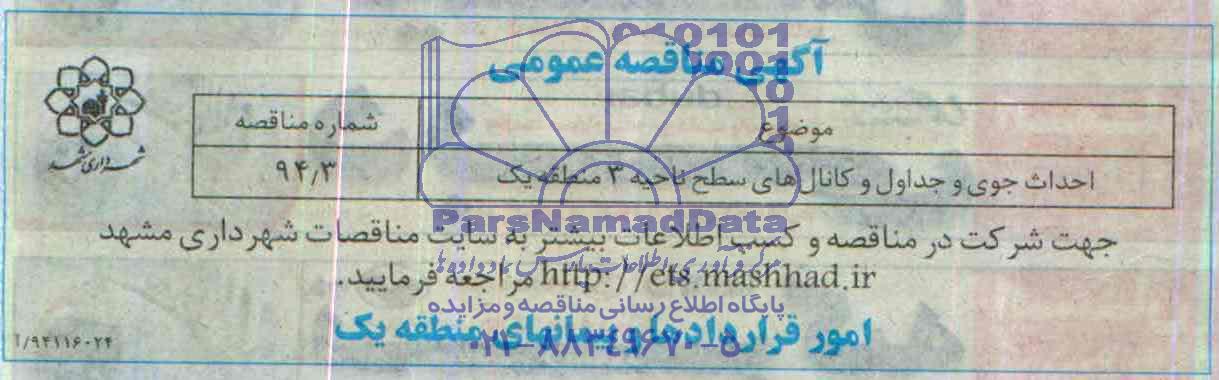 آگهی مناقصه عمومی
موضوع
شماره مناقصه
احداث جوی و جداول و کانال های سطح ناحیه ۳ منطقه یک
۹۴٫۳
شهرداری مشهد
جهت شرکت در مناقصه و کسب اطلاعات بیشتر به سایت مناقصات شهرداری مشهد
http://ets.mashhad.ir مراجعه فرمایید.
امور قراردادها و پیمانهای منطقه یک
۹۴۱۱۶۰۲۴/آ
ParsNamadData
پایگاه اطلاع رسانی مناقصه و مزایده
۰۲۱-۸۸۳۴۹۶۷۰-۵